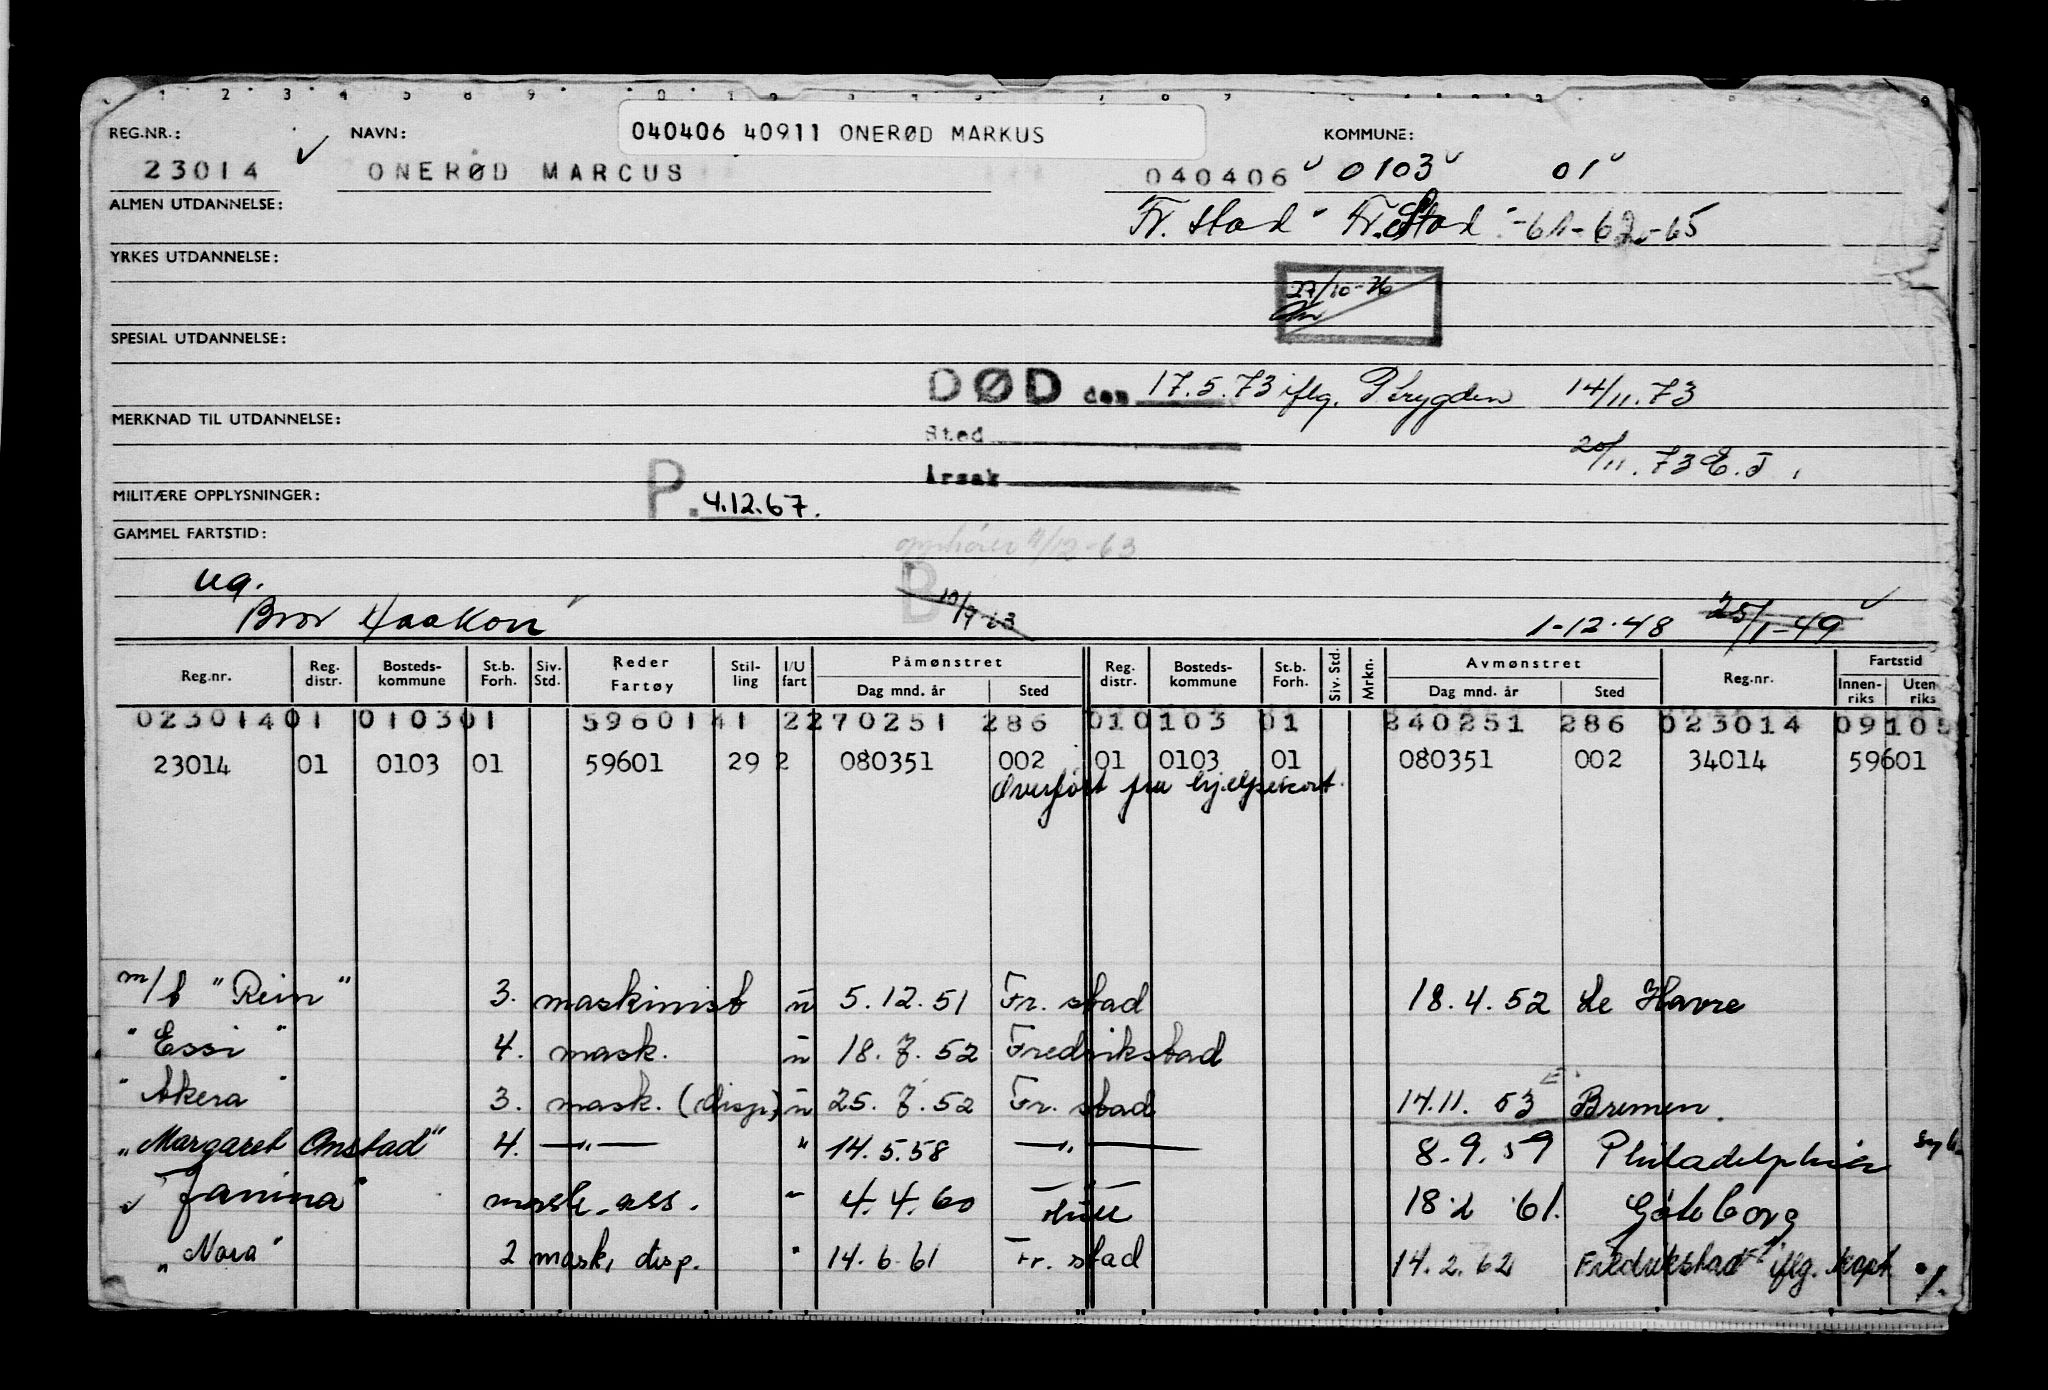 1 2 3 4 5 6 9
040406 40911 ONERØD MARKUS
REG.NR.: NAVN: KOMMUNE:
23014 ✓ ONERØD MARCUS 040406 0103 01
ALMEN UTDANNELSE: Fr. stad Fr. Stad -61-62-65
YRKES UTDANNELSE:
27/10-76
SPESIAL UTDANNELSE:
DØD den 17.5.73 iflg. P.trygden 14/11.73
MERKNAD TIL UTDANNELSE:
Sted
20/11.73 E.T.
Årsak
MILITÆRE OPPLYSNINGER: P. 4.12.67.
GAMMEL FARTSTID:
opphører 4/12-63
ug. B 10/9-63
Bror Haakon 1-12-48 25/1-49 ✓
Reg.nr. Reg. distr. Bosteds-kommune St.b. Forh. Siv. Std. Reder Fartøy Stil-ling I/U fart Påmønstret Dag mnd. år Sted Reg. distr. Bosteds-kommune St.b. Forh. Siv. Std. Mrkn. Avmønstret Dag mnd. år Sted Reg.nr. Fartstid Innen-riks Uten riks
02301401 010301 5960141 2270251 286 010103 01 240251 286 023014 09105
23014 01 0103 01 59601 29 2 080351 002 01 0103 01 080351 002 34014 59601
Overført fra hjelpekort.
m/t "Rein" 3. maskinist u 5.12.51 Fr. stad 18.4.52 Le Havre
" Essi " 4. mask. u 18.7.52 Fredrikstad
" Akera " 3. mask. (disp.) u 25.7.52 Fr. stad 14.11.53 Bremen.
"Margaret Onstad" 4. —"— " 14.5.58 —"— 8.9.59 Philadelphia syk
" Janina " mask. ass. " 4.4.60 Hull 18.2.61. Göteborg
"Nora" 2 mask, disp. " 14.6.61 Fr. stad 14.2.62 Fredrikstad iflg. kapt.